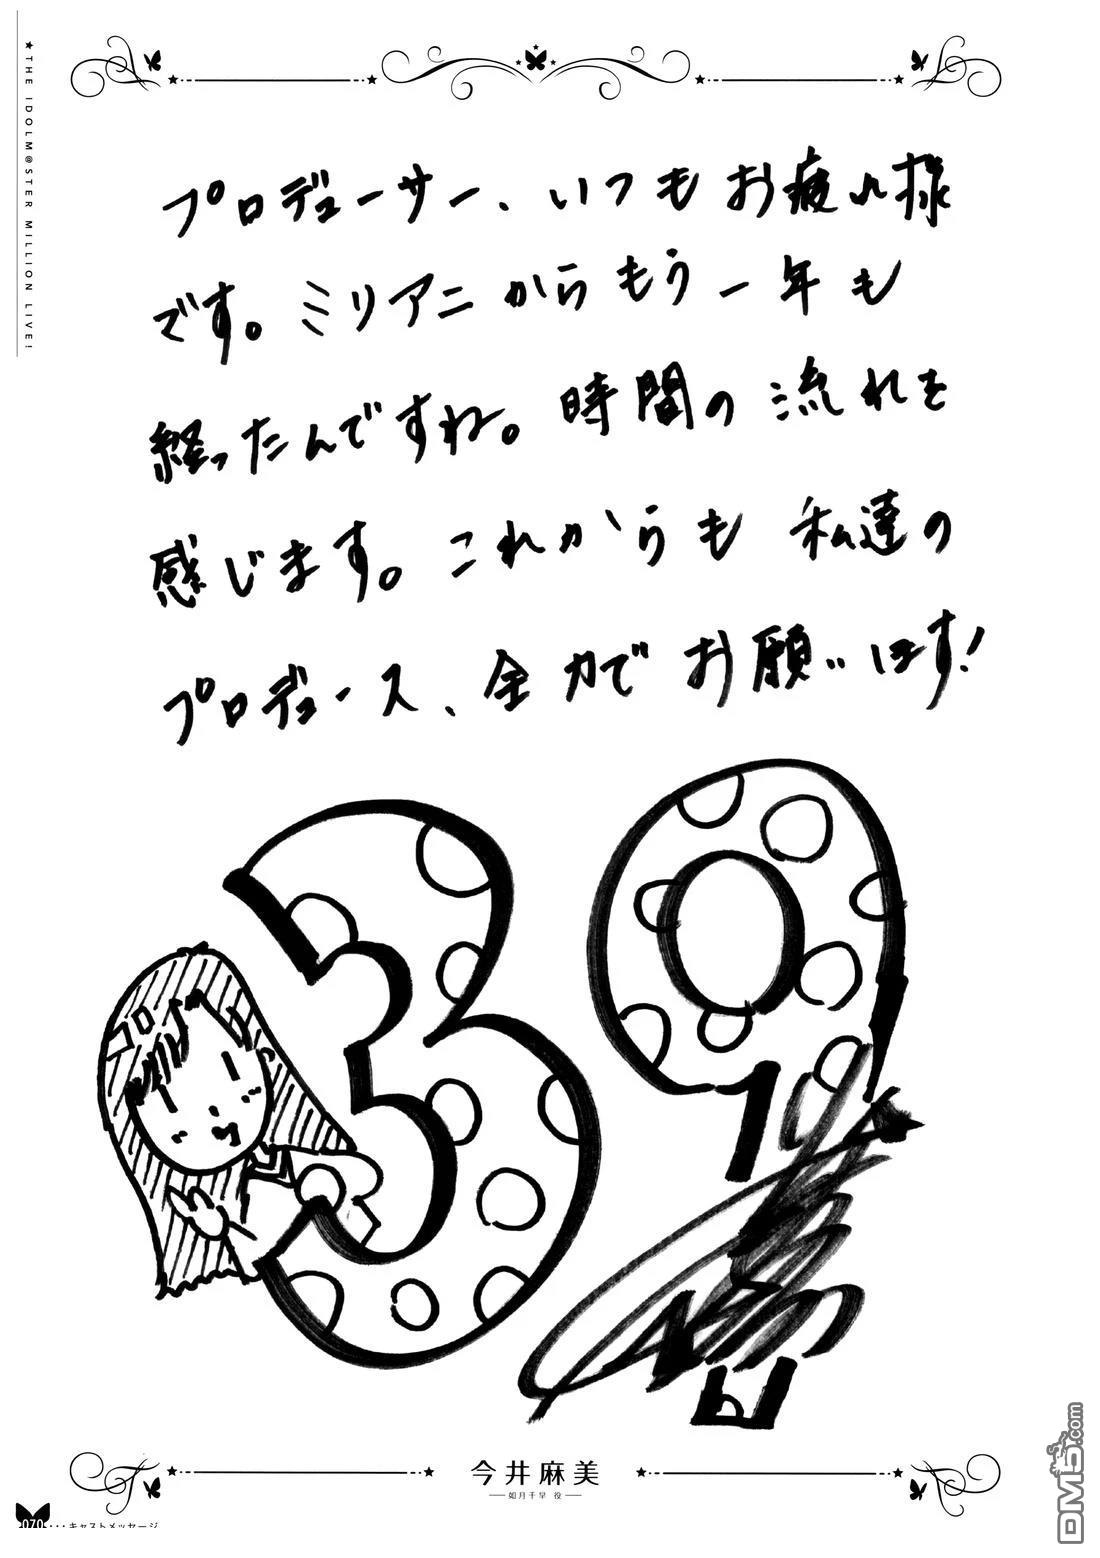 ★THE IDOLM@STER MILLION LIVE!
プロデューサー、いつもお疲れ様
です。ミリアニからもう一年も
経ったんですね。時間の流れを
感じます。これからも私達の
プロデュース、全力でお願いします!
39
今井麻美
如月千早 役
070・・・キャストメッセージ
DM5.com